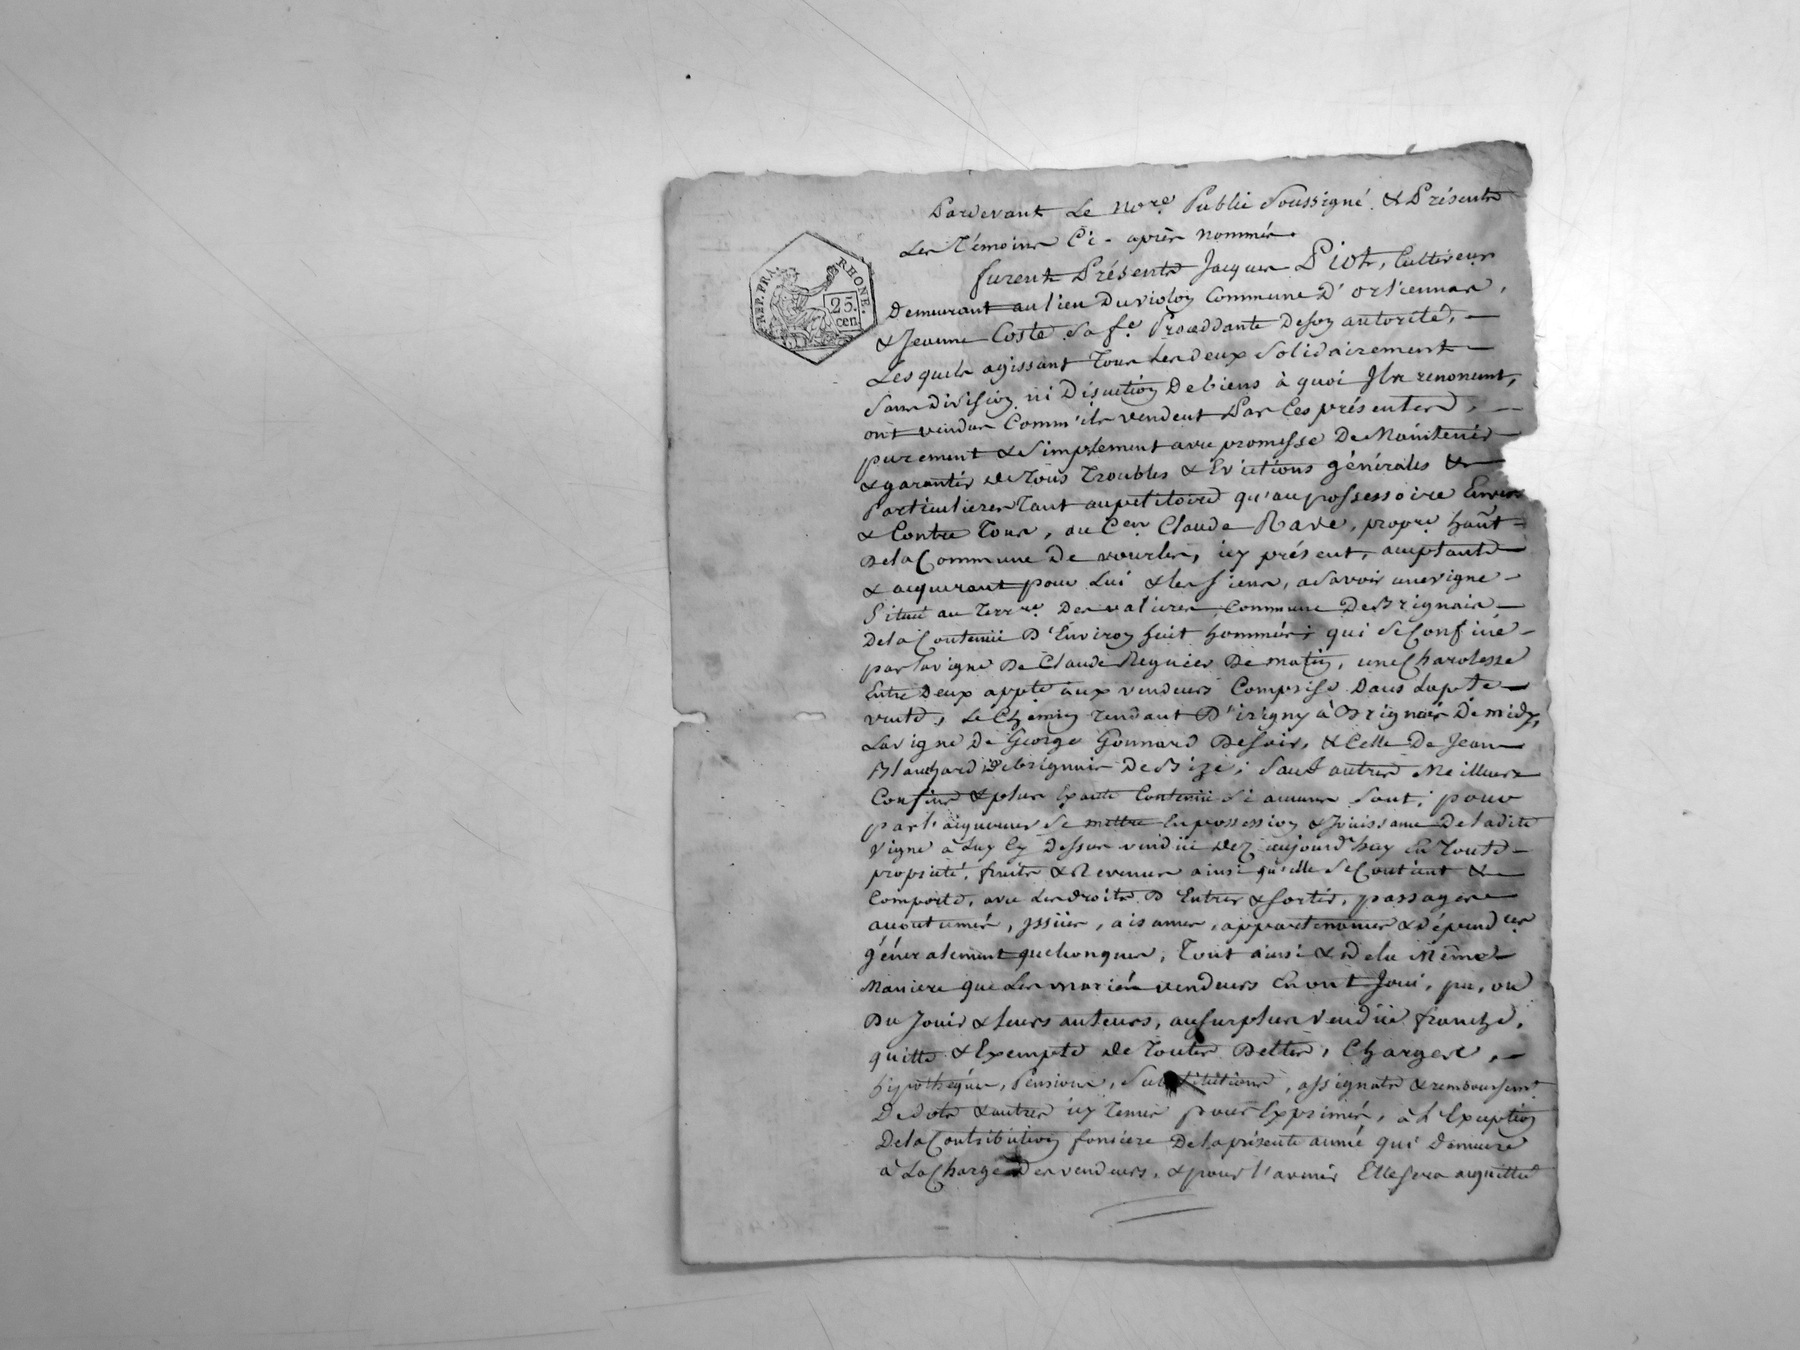 REP. FRA. RHONE.
25.
cen
Pardevant Le no.re Public Soussigné & Présents
Les Témoins Ci-après nommés.
furent Présents Jacques Piot, Cultiveur
Demeurant au lieu Duviolon Commune D'orliennas,
& Jeanne Coste Sa f.e Procédante De son autorité,
Lesquels agissant Tous Les deux Solidairement
Sans division ni Discution De biens à quoi Ils renoncent,
ont vendus Comm'ils vendent Par Ces présentes,
purement & Simplement avec promesse De Maintenir
& garantir de Tous Troubles & Evictions générales &
Particulieres Tant aupetitoire qu'au possessoire Envers
& Contre Tous, au C.en Claude Rave, propre. hañt
De la Commune De vourles, icy présent, acceptant
& acquerant pour Lui & les siens, asavoir une vigne
Située au Terr.re Des valieres, Commune De Brignais
De la Contenüe D'Environ huit hommées; qui se Confine
par la vigne De Claude Regnier De matin, une Charolesse
Entre Deux appte aux vendeurs Comprise Dans la pte
vente, Le Chemin Tendant D'irigny à Brignais De midy,
La vigne De George Gonnard De soir, & Celle De Jean
Blanchard de brignais De Bize; Sauf autres Meilleurs
Confins & plus Exacte Contenüe Si aucuns Sont; pour
par l'acquereur Se mettre En possession & Jouissance De ladite
vigne à Luy Cy Dessus vendüe dez aujourd'huy En Toute
propriété, fruits & Revenus ainsi qu'elle Se Contient &
Comporte, avec Les droits D'Entrer & sortir, passages
accoutumés, issües, aisances, appartenances & dépend.ces
généralement quelconques, Tout ainsi & De la Même
Maniere que Les mariés vendeurs En ont Joui, pu, ou
Du Jouir & leurs auteurs, au surplus vendüe franche,
quitte & Exempte de Toutes Dettes, Charges,
hipothéques, Pensions, Substitutions, assignats & remboursemt
De dots & autres icy Tenus pour Exprimés, à L'Exception
De la Contribution fonciere De la présente année qui demeure
à La Charge Des vendeurs, & pour l'avenir Elle sera acquittée